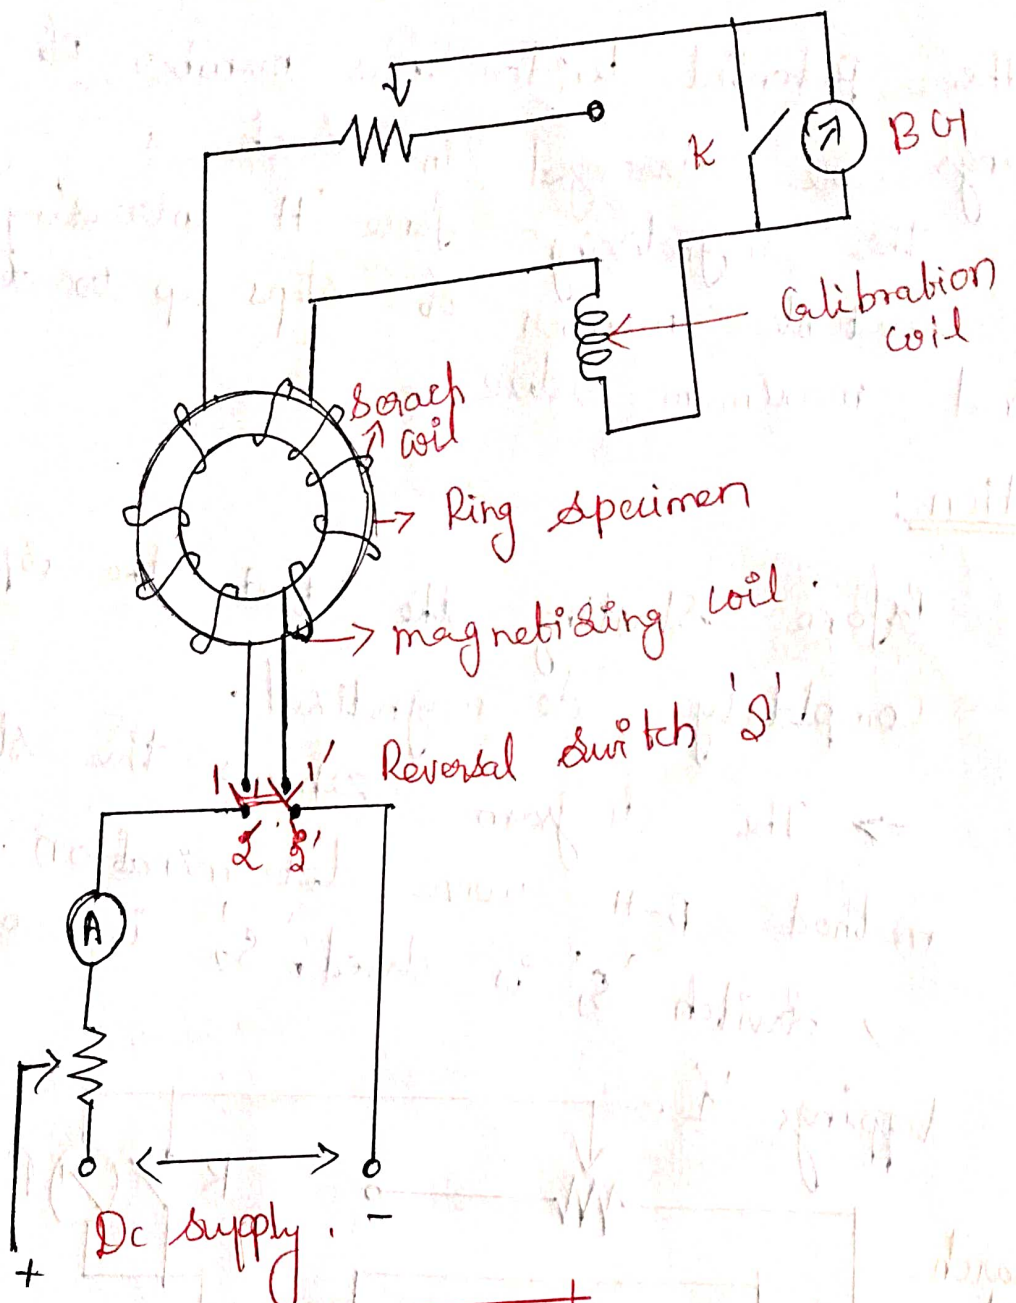 K
BG
Calibration
coil
Serach
coil
Ring specimen
magnetising coil.
Reversal switch 'S'
1 1'
2 2'
A
Dc supply.
+
-